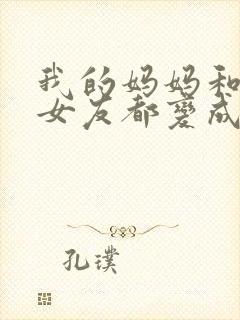 我的妈妈和
女友都变成
孔璞